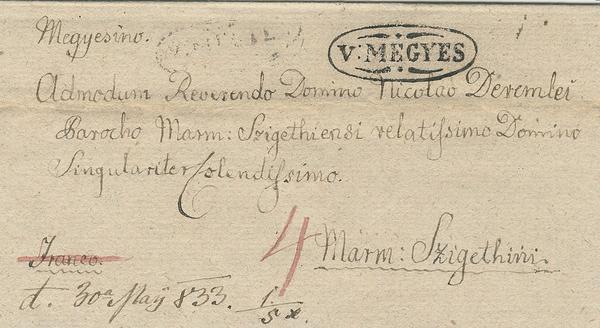 Megyesino.
V: MEGYES
Admodum Reverendo Domino Nicolao Deremlei
Parocho Marm: Szigethiensi relatissimo Domino
Singulariter Colendissimo.
4
Marm: Szigethini.
Franco.
d. 30a Maÿ 833. 1/5 x.